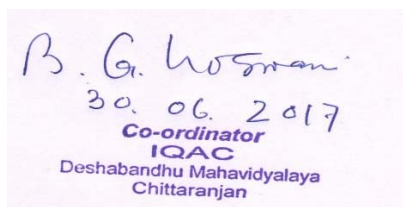 B. Goswami
30. 06. 2017
Co-ordinator
IQAC
Deshabandhu Mahavidyalaya
Chittaranjan